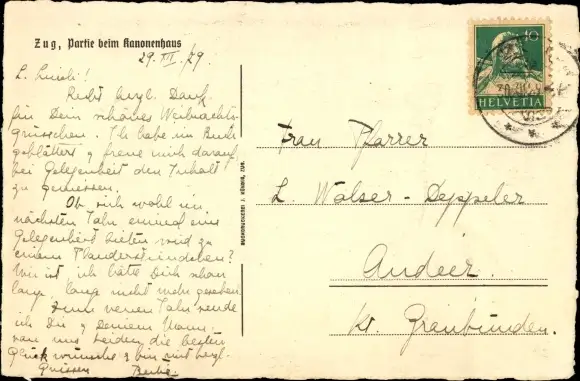 Zug, Partie beim Kanonenhaus
29. XII. 29.
L. Luisli!
Recht herzl. Dank
für Dein schönes Weihnachts-
grüsschen. Ich habe im Buch
geblättert & freue mich darauf,
bei Gelegenheit den Inhalt
zu geniessen.
Ob sich wohl im
nächsten Jahr einmal eine
Gelegenheit bieten wird zu
einem Plauderstündchen?
Mir ist, ich hätte Dich schon
lang, lang nicht mehr gesehen.
Zum neuen Jahr sende
ich Dir & Deinem Mann
von uns beiden die besten
Glückwünsche & bin mit herzl.
Grüssen
BUCHDRUCKEREI J. KÜNDIG, ZUG
10
HELVETIA
Frau Pfarrer
L. Walser-Deppeler
Andeer.
Kt. Graubünden.